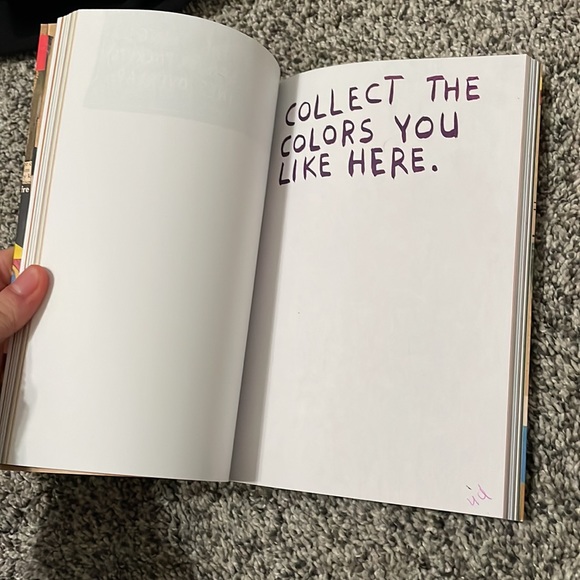 COLLECT THE
COLORS YOU
LIKE HERE.